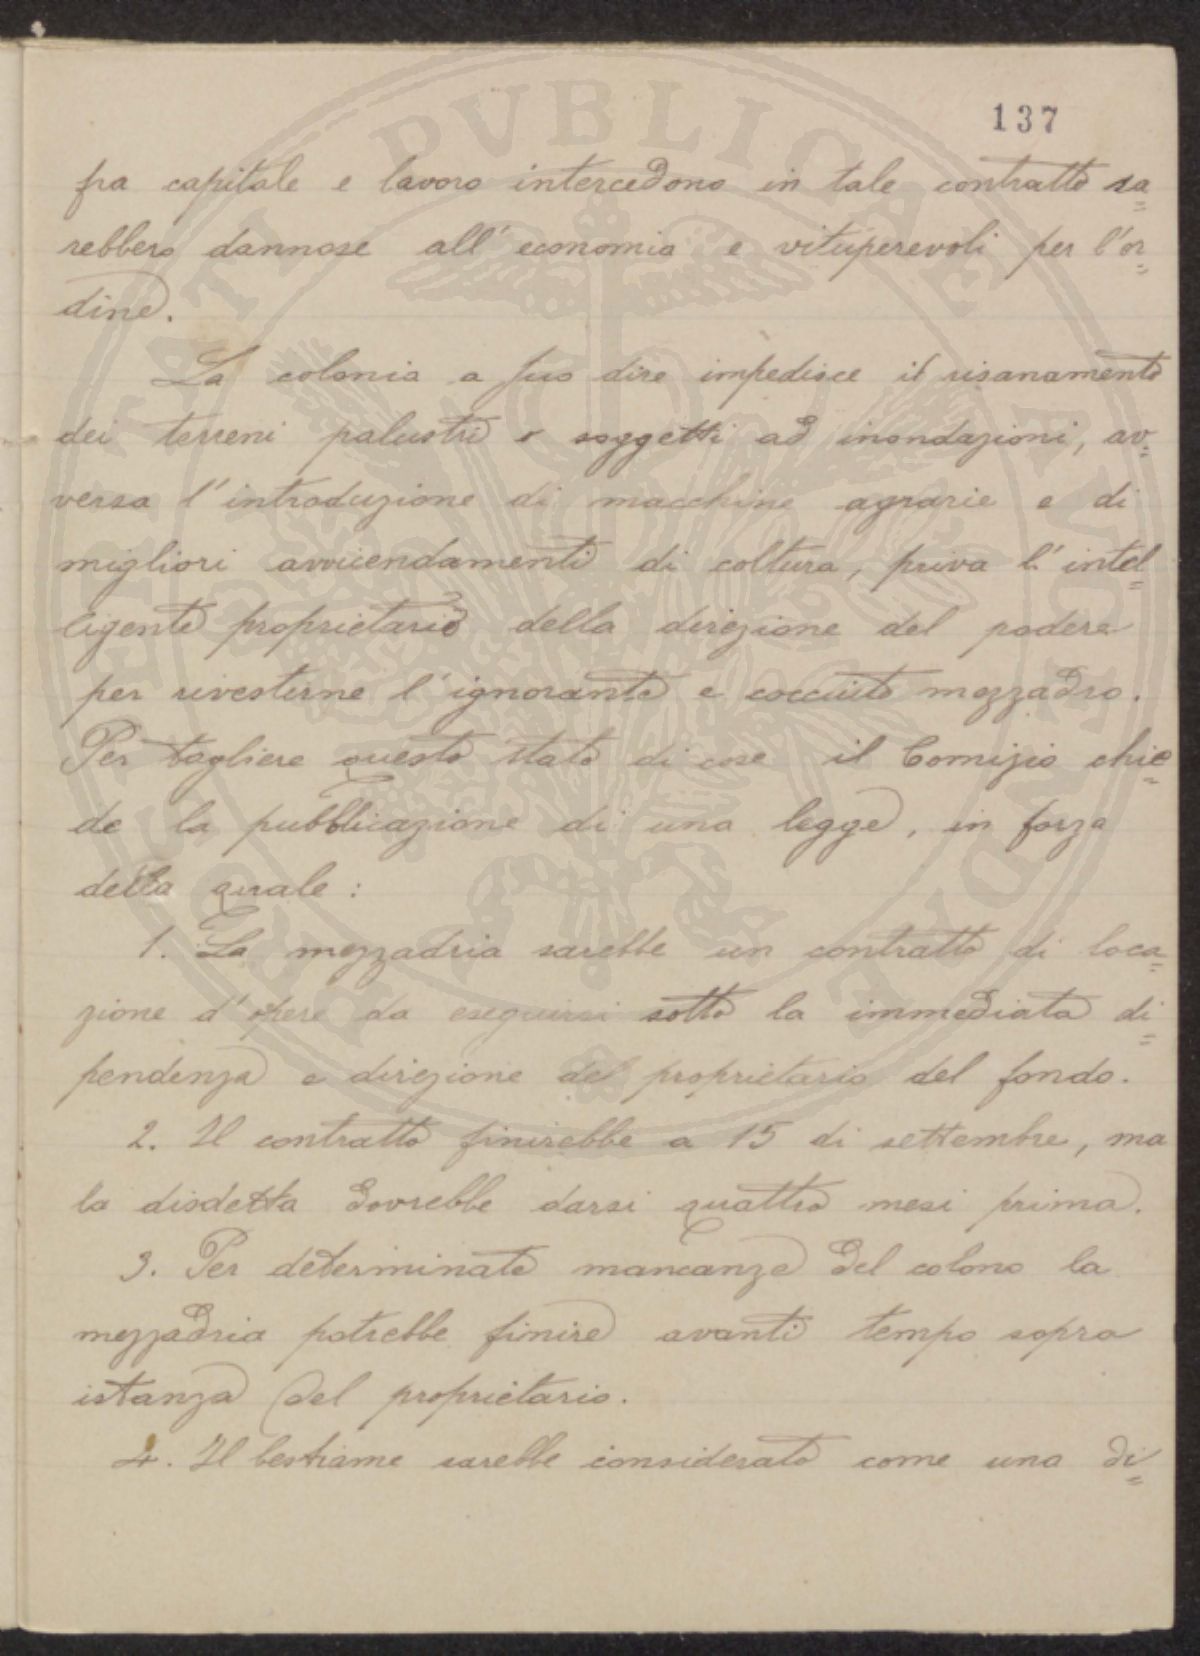 137
fra capitale e lavoro intercedono in tale contratto sa=
rebbero dannose all'economia e vituperevoli per l'or=
dine.
La colonia a suo dire impedisce il risanamento
dei terreni palustri e soggetti ad inondazioni, av=
versa l'introduzione di macchine agrarie e di
migliori avvicendamenti di coltura, priva l'intel=
ligente proprietario della direzione del podere
per rivestirne l'ignorante e cocciuto mezzadro.
Per togliere questo stato di cose il Comizio chie=
de la pubblicazione di una legge, in forza
della quale:
1. La mezzadria sarebbe un contratto di loca=
zione d'opere da eseguirsi sotto la immediata di=
pendenza e direzione del proprietario del fondo.
2. Il contratto finirebbe a 15 di settembre, ma
la disdetta dovrebbe darsi quattro mesi prima.
3. Per determinate mancanze del colono la
mezzadria potrebbe finire avanti tempo sopra
istanza del proprietario.
4. Il bestiame sarebbe considerato come una di=